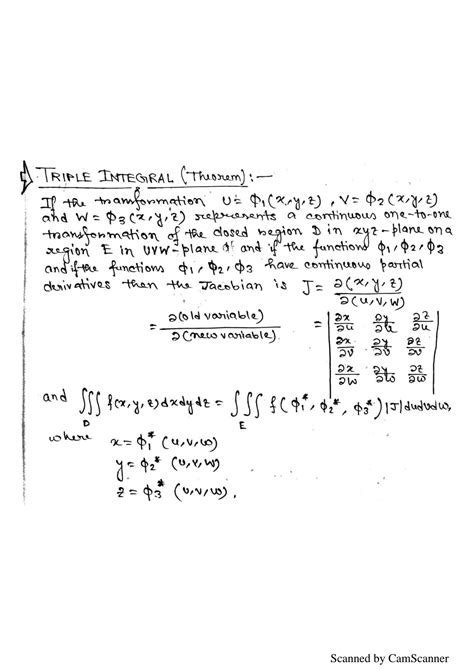 TRIPLE INTEGRAL (Theorem):—
If the transformation U = ϕ1(x,y,z), V = ϕ2(x,y,z)
and W = ϕ3(x,y,z) represents a continuous one-to-one
transformation of the closed region D in xyz-plane on a
region E in UVW-plane and if the functions ϕ1, ϕ2, ϕ3
and if the functions ϕ1, ϕ2, ϕ3 have continuous partial
derivatives then the Jacobian is J = ∂(x,y,z)/∂(u,v,w)
= ∂(old variable)/∂(new variable) = | ∂x/∂u ∂y/∂u ∂z/∂u |
| ∂x/∂v ∂y/∂v ∂z/∂v |
| ∂x/∂w ∂y/∂w ∂z/∂w |
and ∭_D f(x,y,z) dxdydz = ∭_E f(ϕ1*, ϕ2*, ϕ3*) |J| dudvdw,
where x = ϕ1* (u,v,w)
y = ϕ2* (u,v,w)
z = ϕ3* (u,v,w).
Scanned by CamScanner